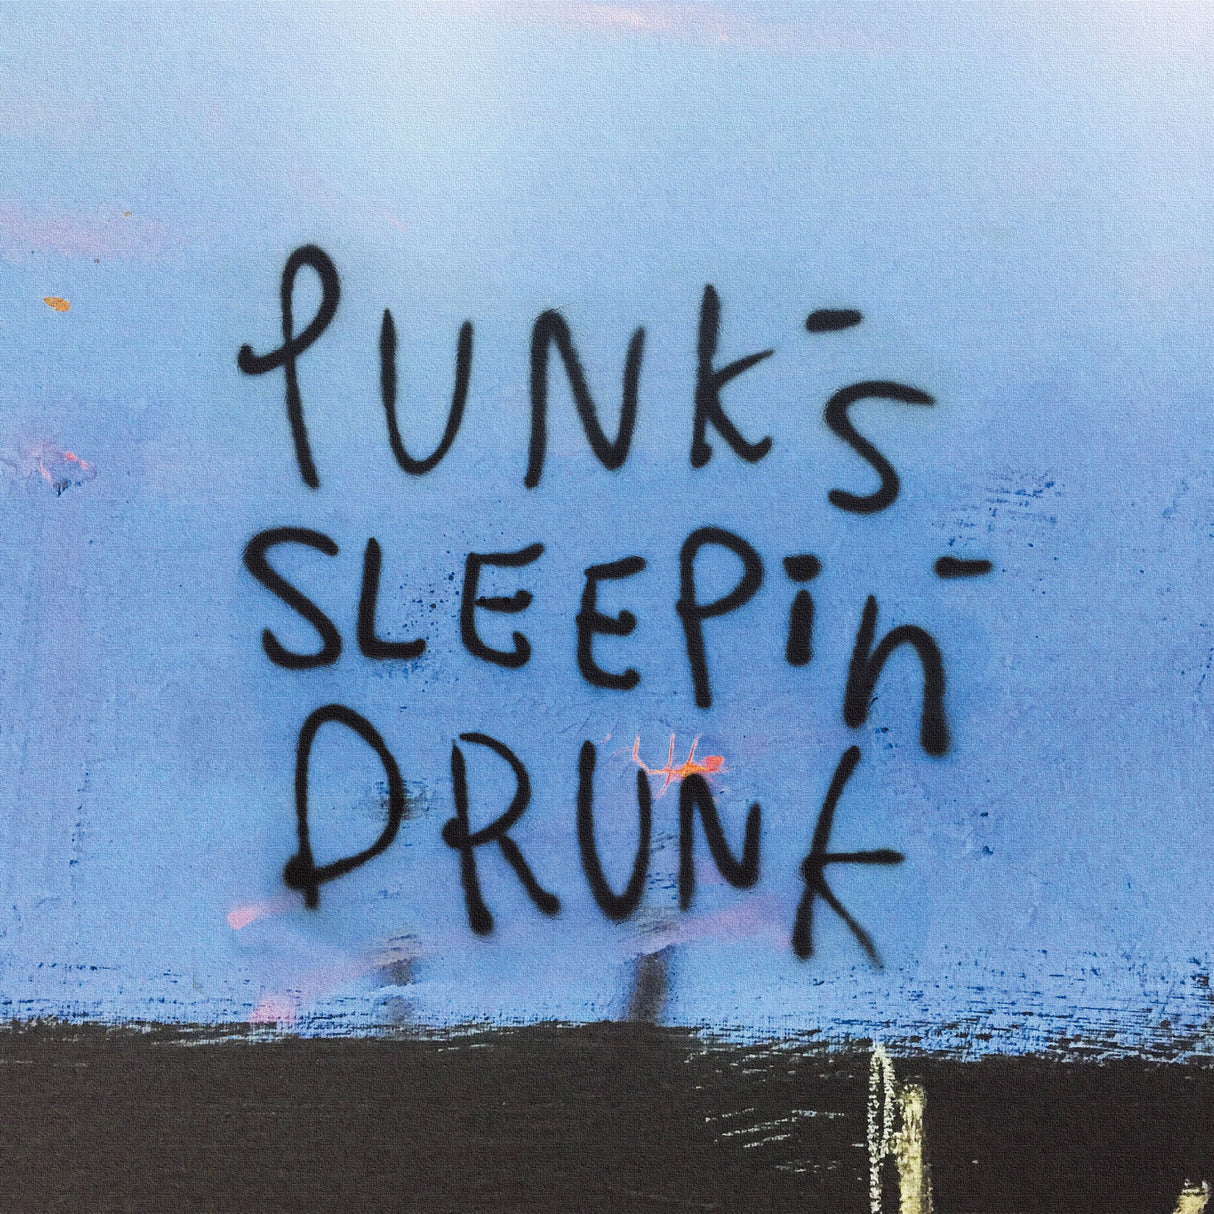 PUNK'S
SLEEPIN'
DRUNK